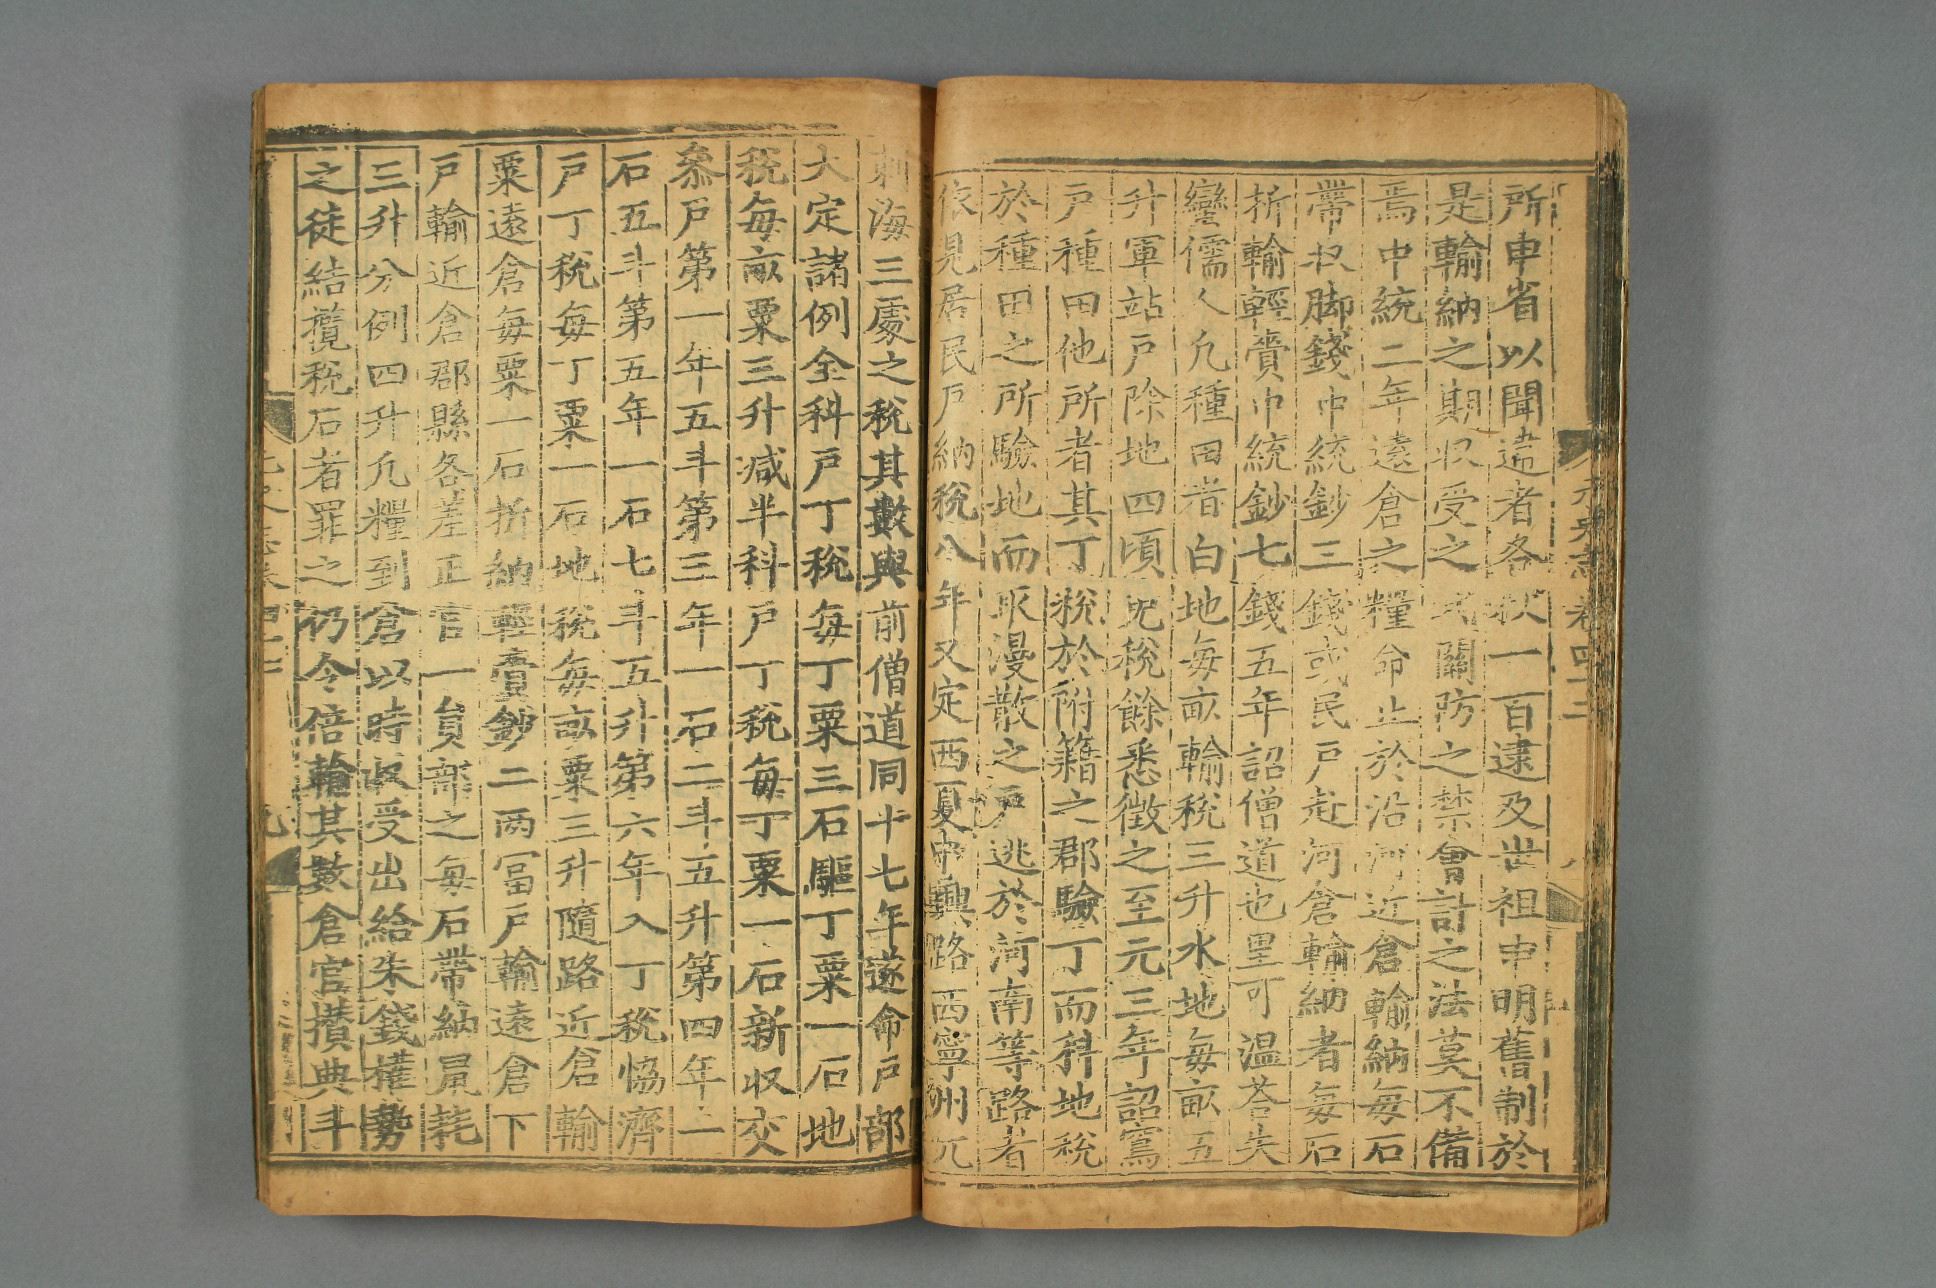 所申省以聞違者各杖一百逮及世祖申明舊制於
是輸納之期収受之式關防之禁會計之法莫不備
焉中統二年遠倉之糧命止於沿河近倉輸納每石
帶収脚錢中統鈔三錢或民戸赴河倉輸納者每石
折輸輕賫中統鈔七錢五年詔僧道也里可温荅失
蠻儒人凣種田者白地每畝輸税三升水地每畝五
升軍站戸除地四頃免税餘悉徴之至元三年詔窩
戸種田他所者其丁税於附籍之郡驗丁而科地税
於種田之所驗地而取漫散之戸逃於河南等路者
依見居民戸納税八年又定西夏中興路西寧州兀
剌海三處之税其數與前僧道同十七年遂命戸部
大定諸例全科戸丁税每丁粟三石驅丁粟一石地
税每畝粟三升减半科戸丁税每丁粟一石新収交
叅戸第一年五斗第三年一石二斗五升第四年一
石五斗第五年一石七斗五升第六年入丁税恊濟
戸丁税每丁粟一石地税每畝粟三升隨路近倉輸
粟遠倉每粟一石折納輕賫鈔二兩冨戸輸遠倉下
戸輸近倉郡縣各差正官一員部之每石帶納鼠耗
三升分例四升凣糧到倉以時収受出給朱錢權勢
之徒結攬税石者罪之仍令倍輸其數倉官攅典斗
元史志卷四十二
九